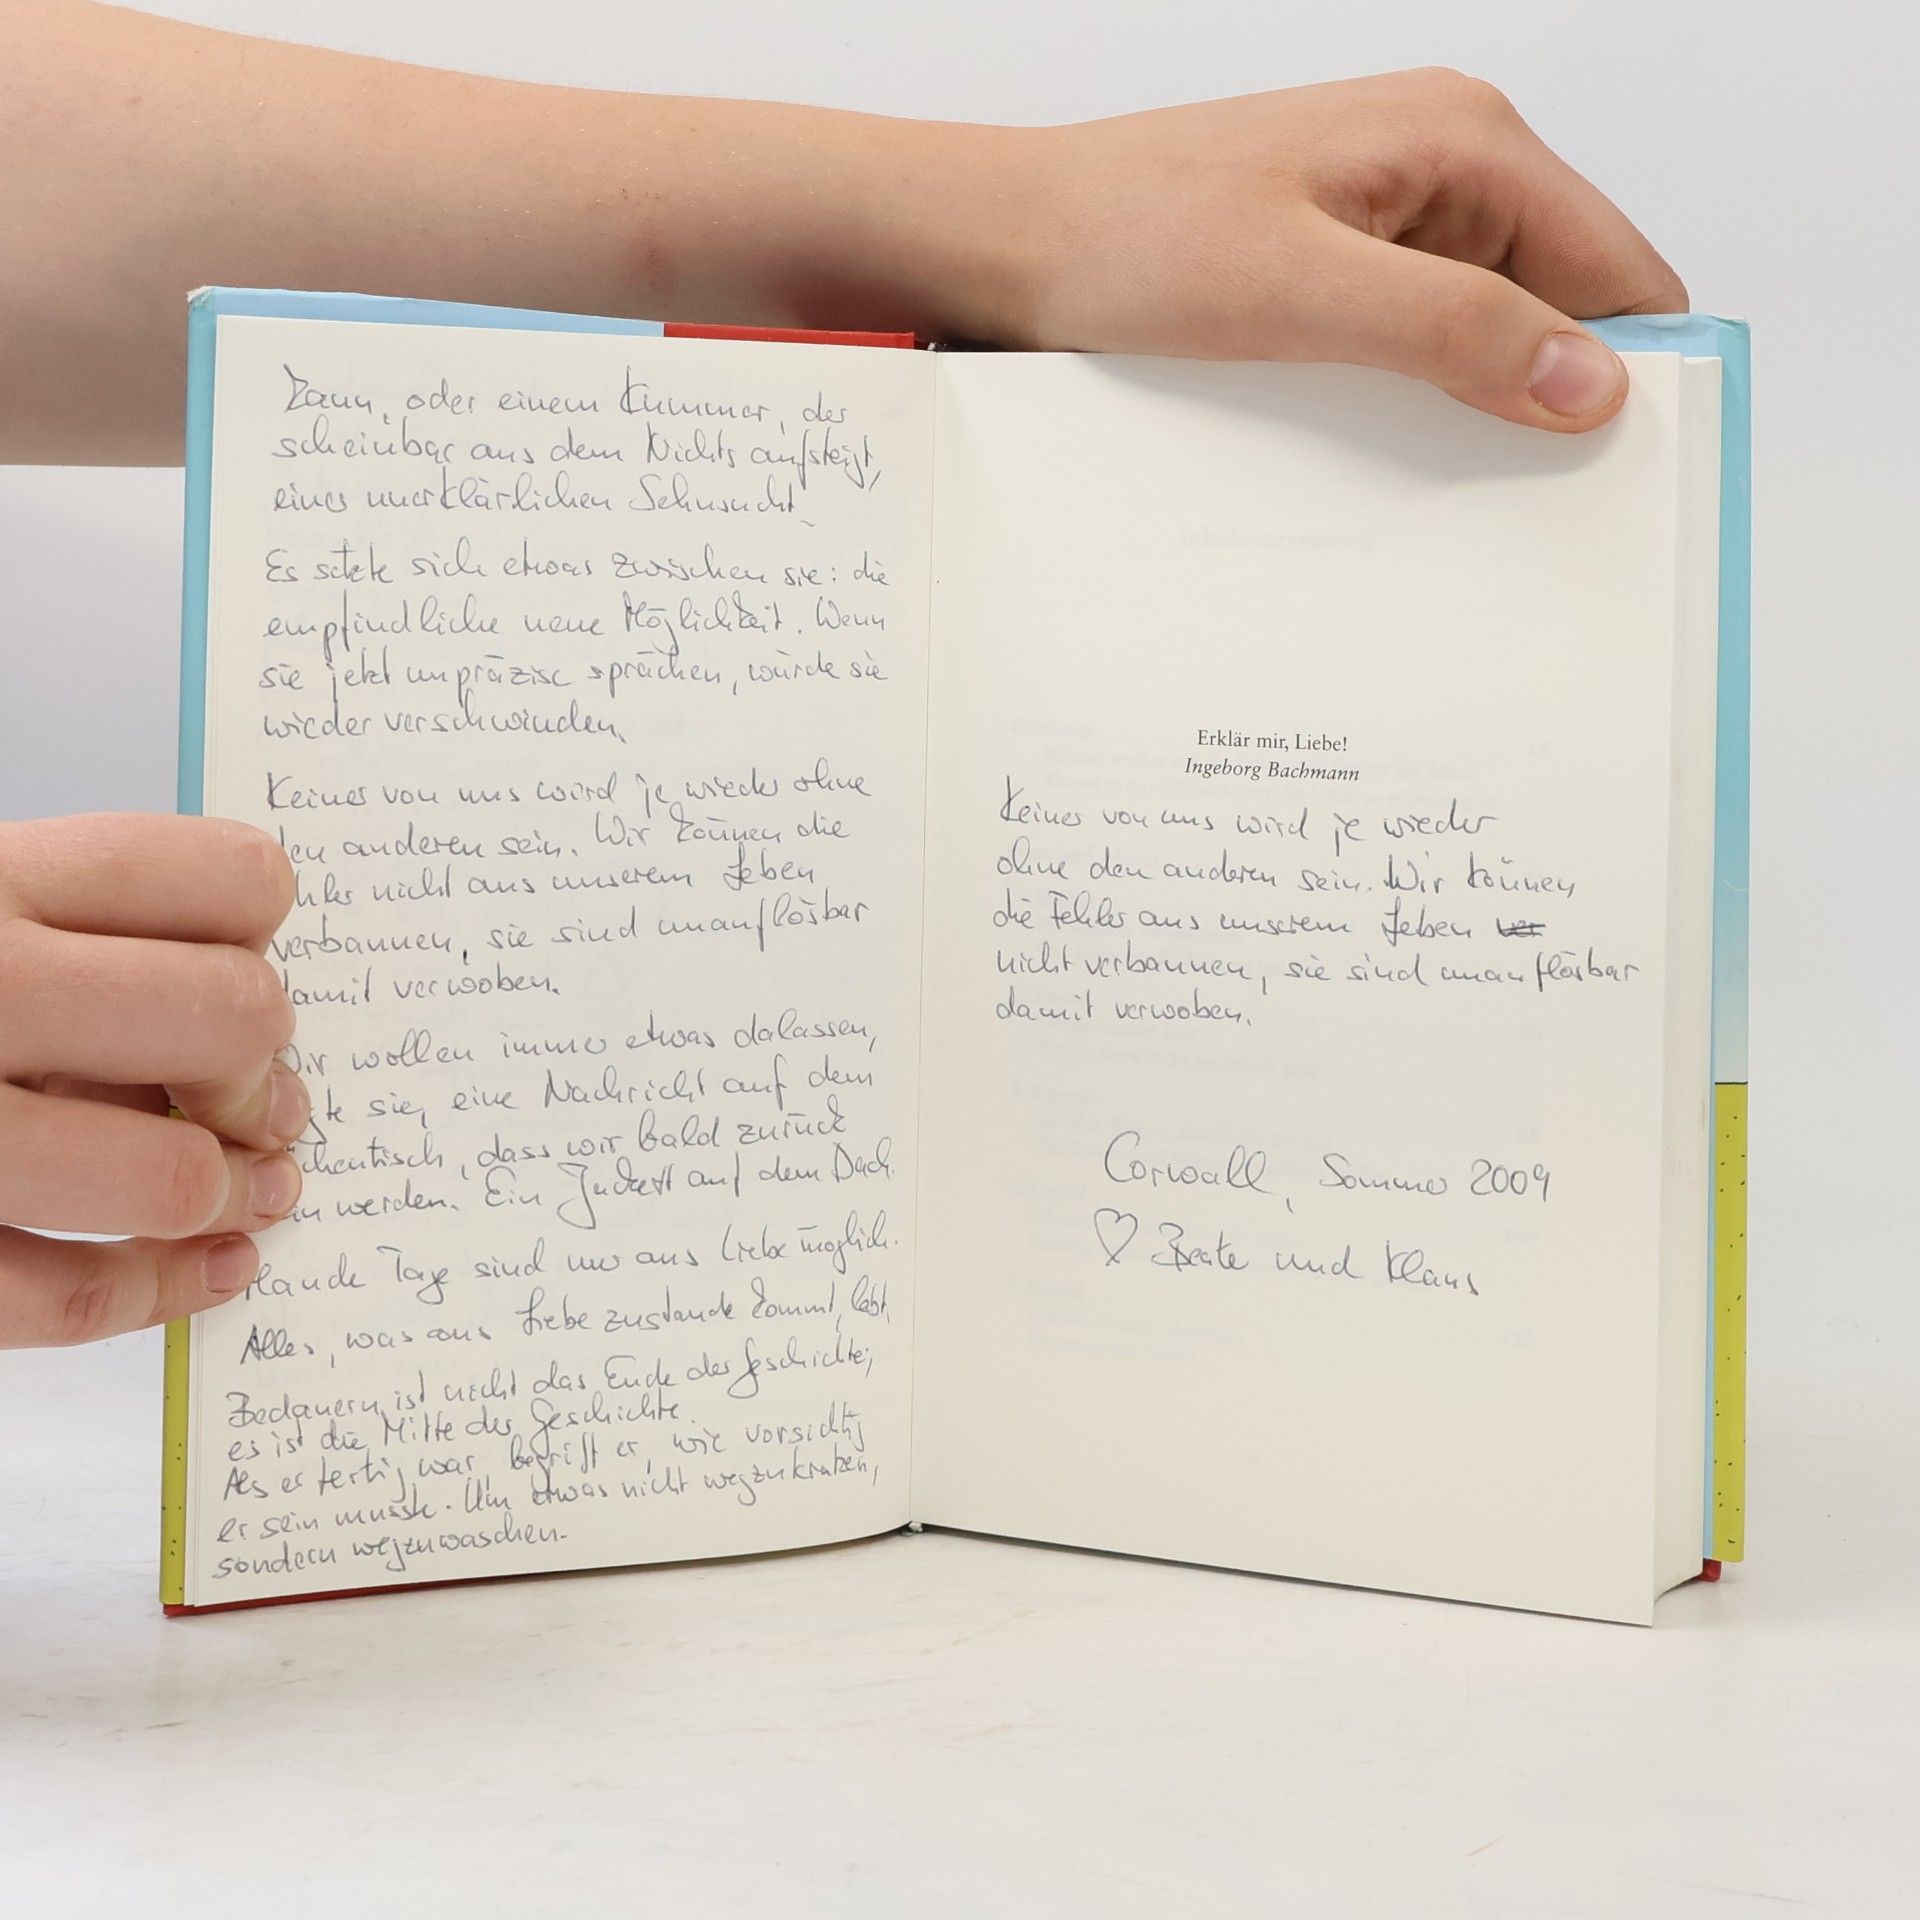 kann, oder einem Kummer, der
scheinbar aus dem Nichts aufsteigt,
einer unerklärlichen Sehnsucht
Es setzte sich etwas zwischen sie: die
empfindliche neue Möglichkeit. Wenn
sie jetzt unpräzise sprächen, würde sie
wieder verschwinden.
Keiner von uns wird je wieder ohne
den anderen sein. Wir können die
hler nicht aus unserem Leben
verbannen, sie sind unauflösbar
damit verwoben.
Wir wollen immer etwas dalassen,
gte sie, eine Nachricht auf dem
chentisch, dass wir bald zurück
in werden. Ein Jackett auf dem Dach.
Manche Tage sind nur aus Liebe möglich.
Alles, was aus Liebe zustande kommt, lebt,
Bedauern ist nicht das Ende der Geschichte;
es ist die Mitte der Geschichte.
Als er fertig war, begriff er, wie vorsichtig
er sein musste. Um etwas nicht wegzukratzen,
sondern wegzuwaschen.
Erklär mir, Liebe!
Ingeborg Bachmann
Keiner von uns wird je wieder
ohne den anderen sein. Wir können
die Fehler aus unserem Leben ver
nicht verbannen, sie sind unauflösbar
damit verwoben.
Corwall, Sommer 2009
♡ Beate und Klaus